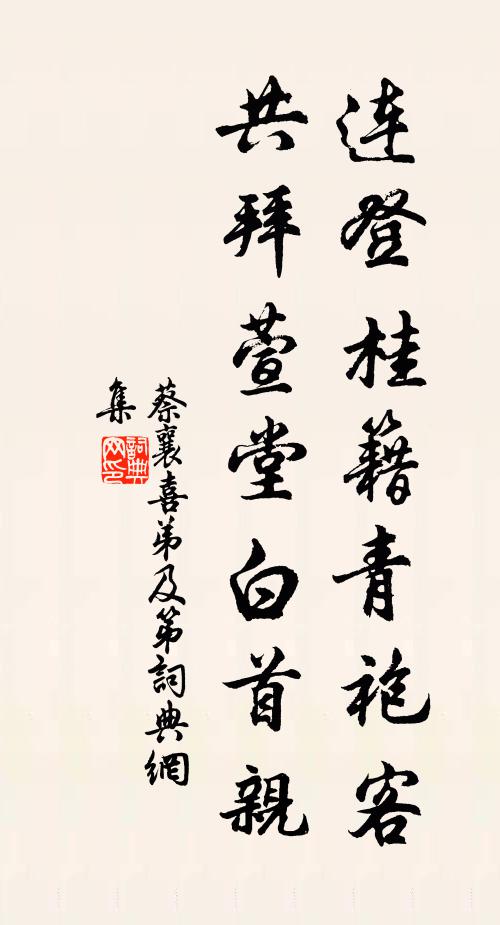 连登桂籍青袍客
共拜萱堂白首親
蔡襄喜弟及第詞典網
集
詞典网印